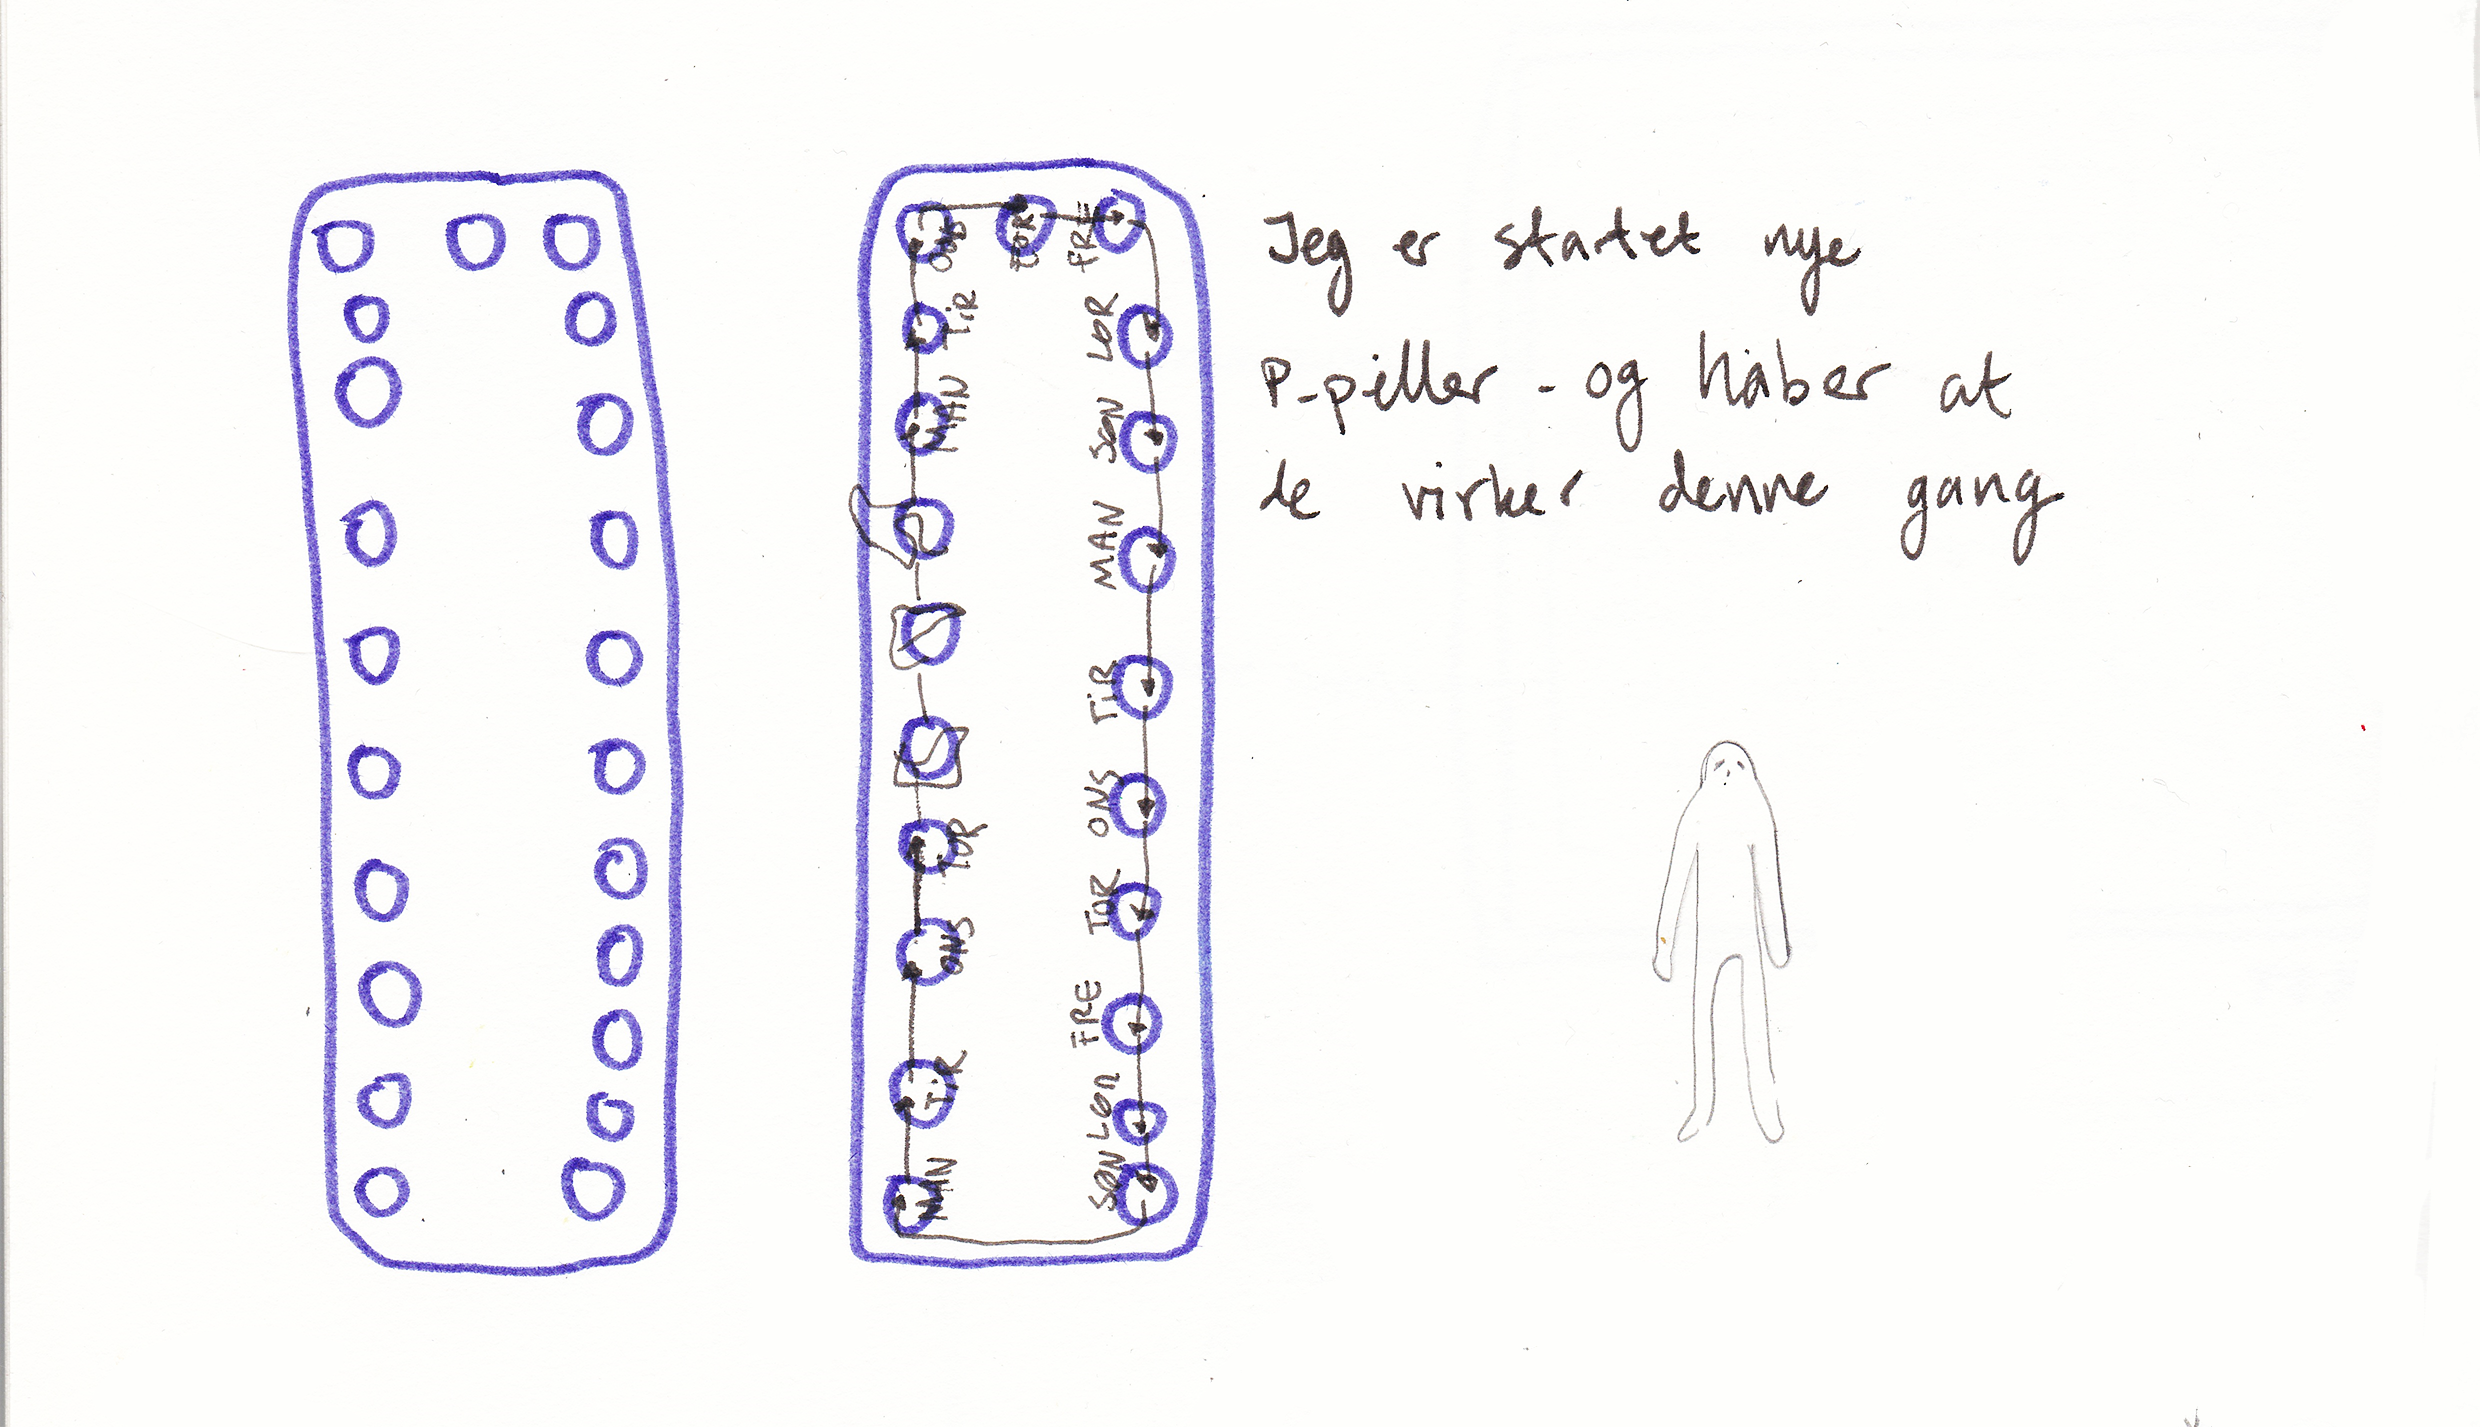 ONS
TOR
FRE
TIR
LØR
MAN
SØN
MAN
TIR
ONS
TOR
TOR
ONS
FRE
TIR
LØR
MAN
SØN
Jeg er startet nye
P-piller - og håber at
de virker denne gang